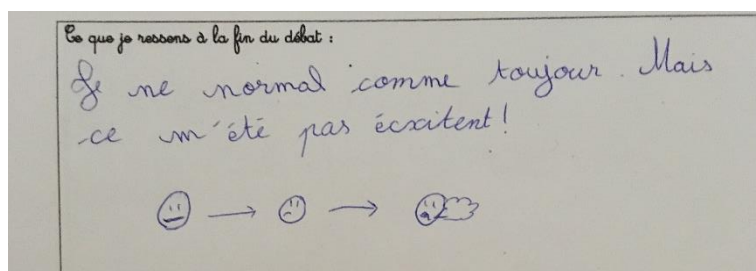 Ce que je ressens à la fin du débat :
Je ne normal comme toujour. Mais
ce m'été pas écxitent!